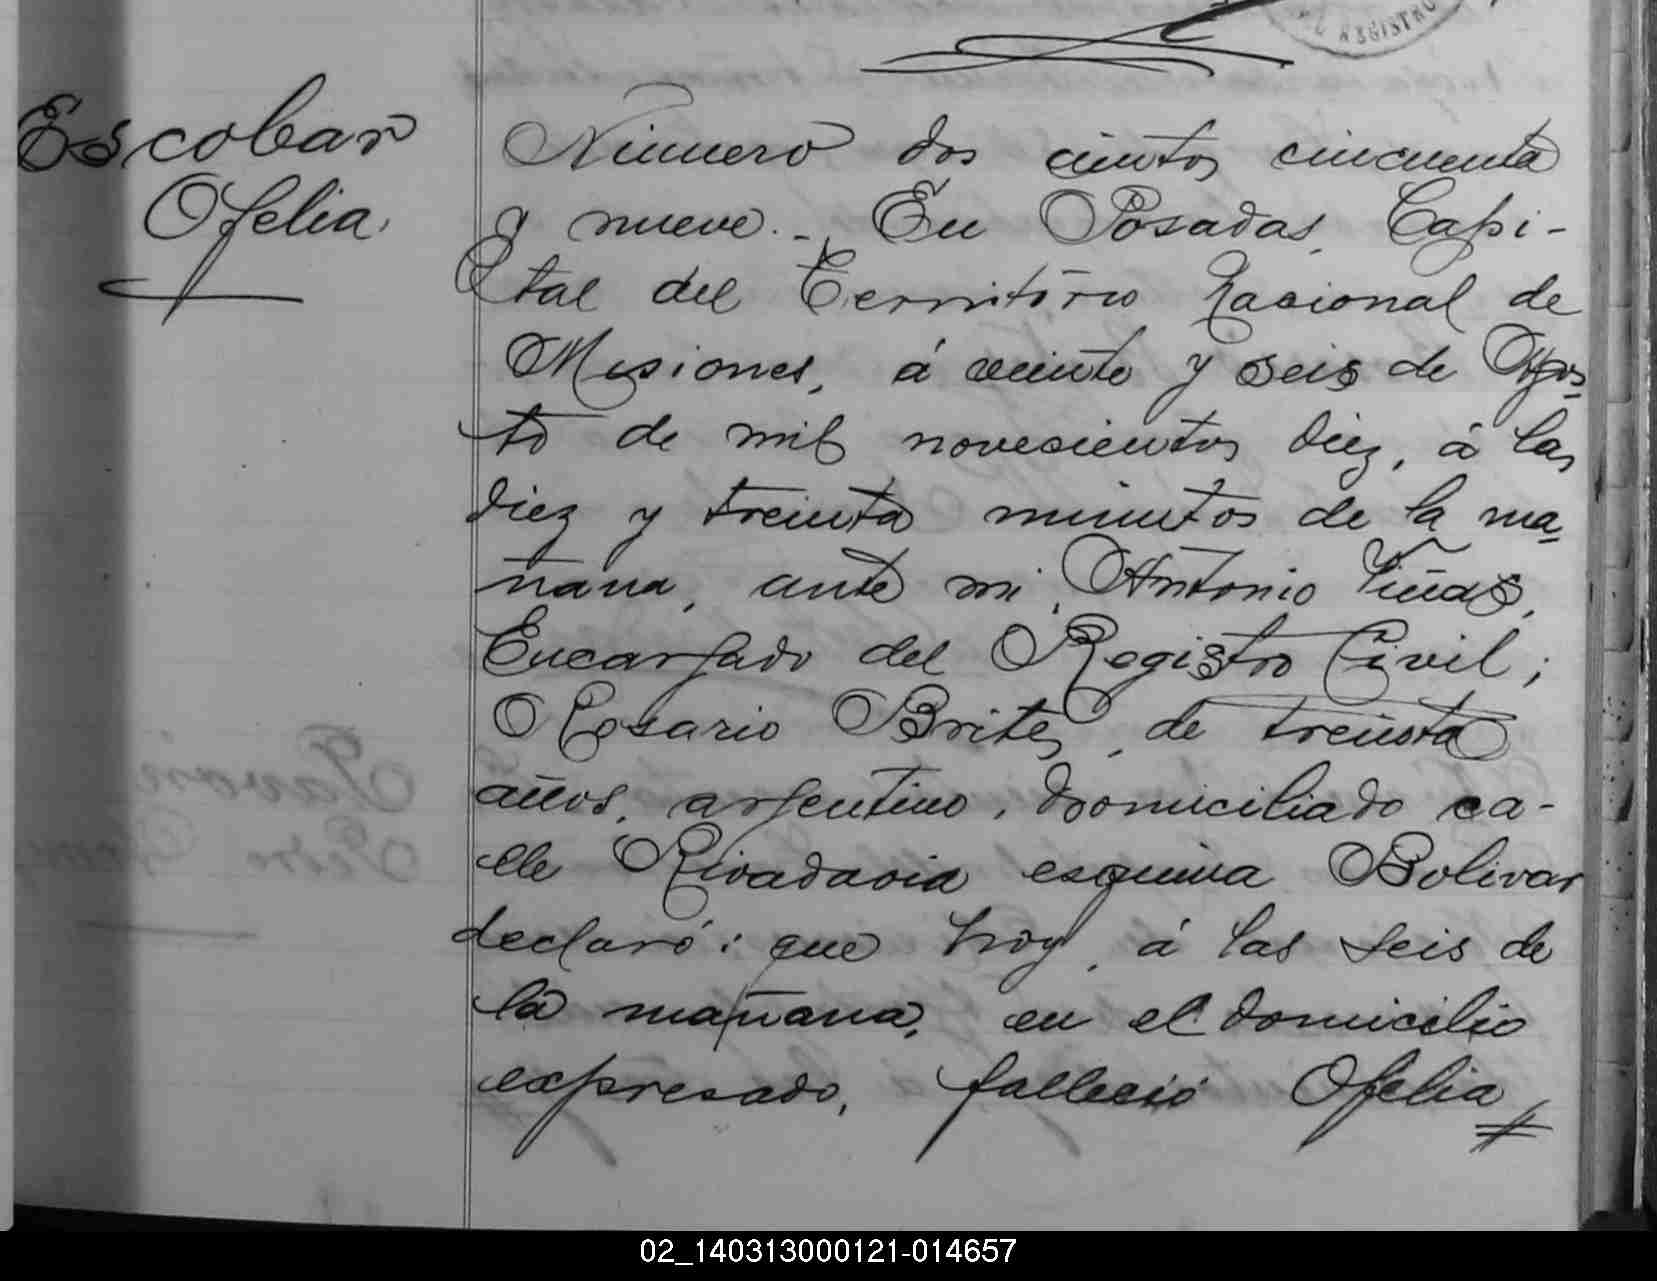 EL REGISTRO
Escobar
Ofelia.
Número dos cientos cincuenta
y nueve.- En Posadas, Capi-
tal del Território Nacional de
Misiones, á veinte y seis de Agos-
to de mil novecientos diez, á las
diez y treinta minutos de la ma-
ñana, ante mi, Antonio Viñas,
Encargado del Registro Civil;
Rosario Brites, de treinta
años, argentino, domiciliado ca-
lle Rivadavia esquina Bolivar
declaró: que hoy, á las seis de
la mañana, en el domicilio
expresado, falleció Ofelia
02_140313000121-014657